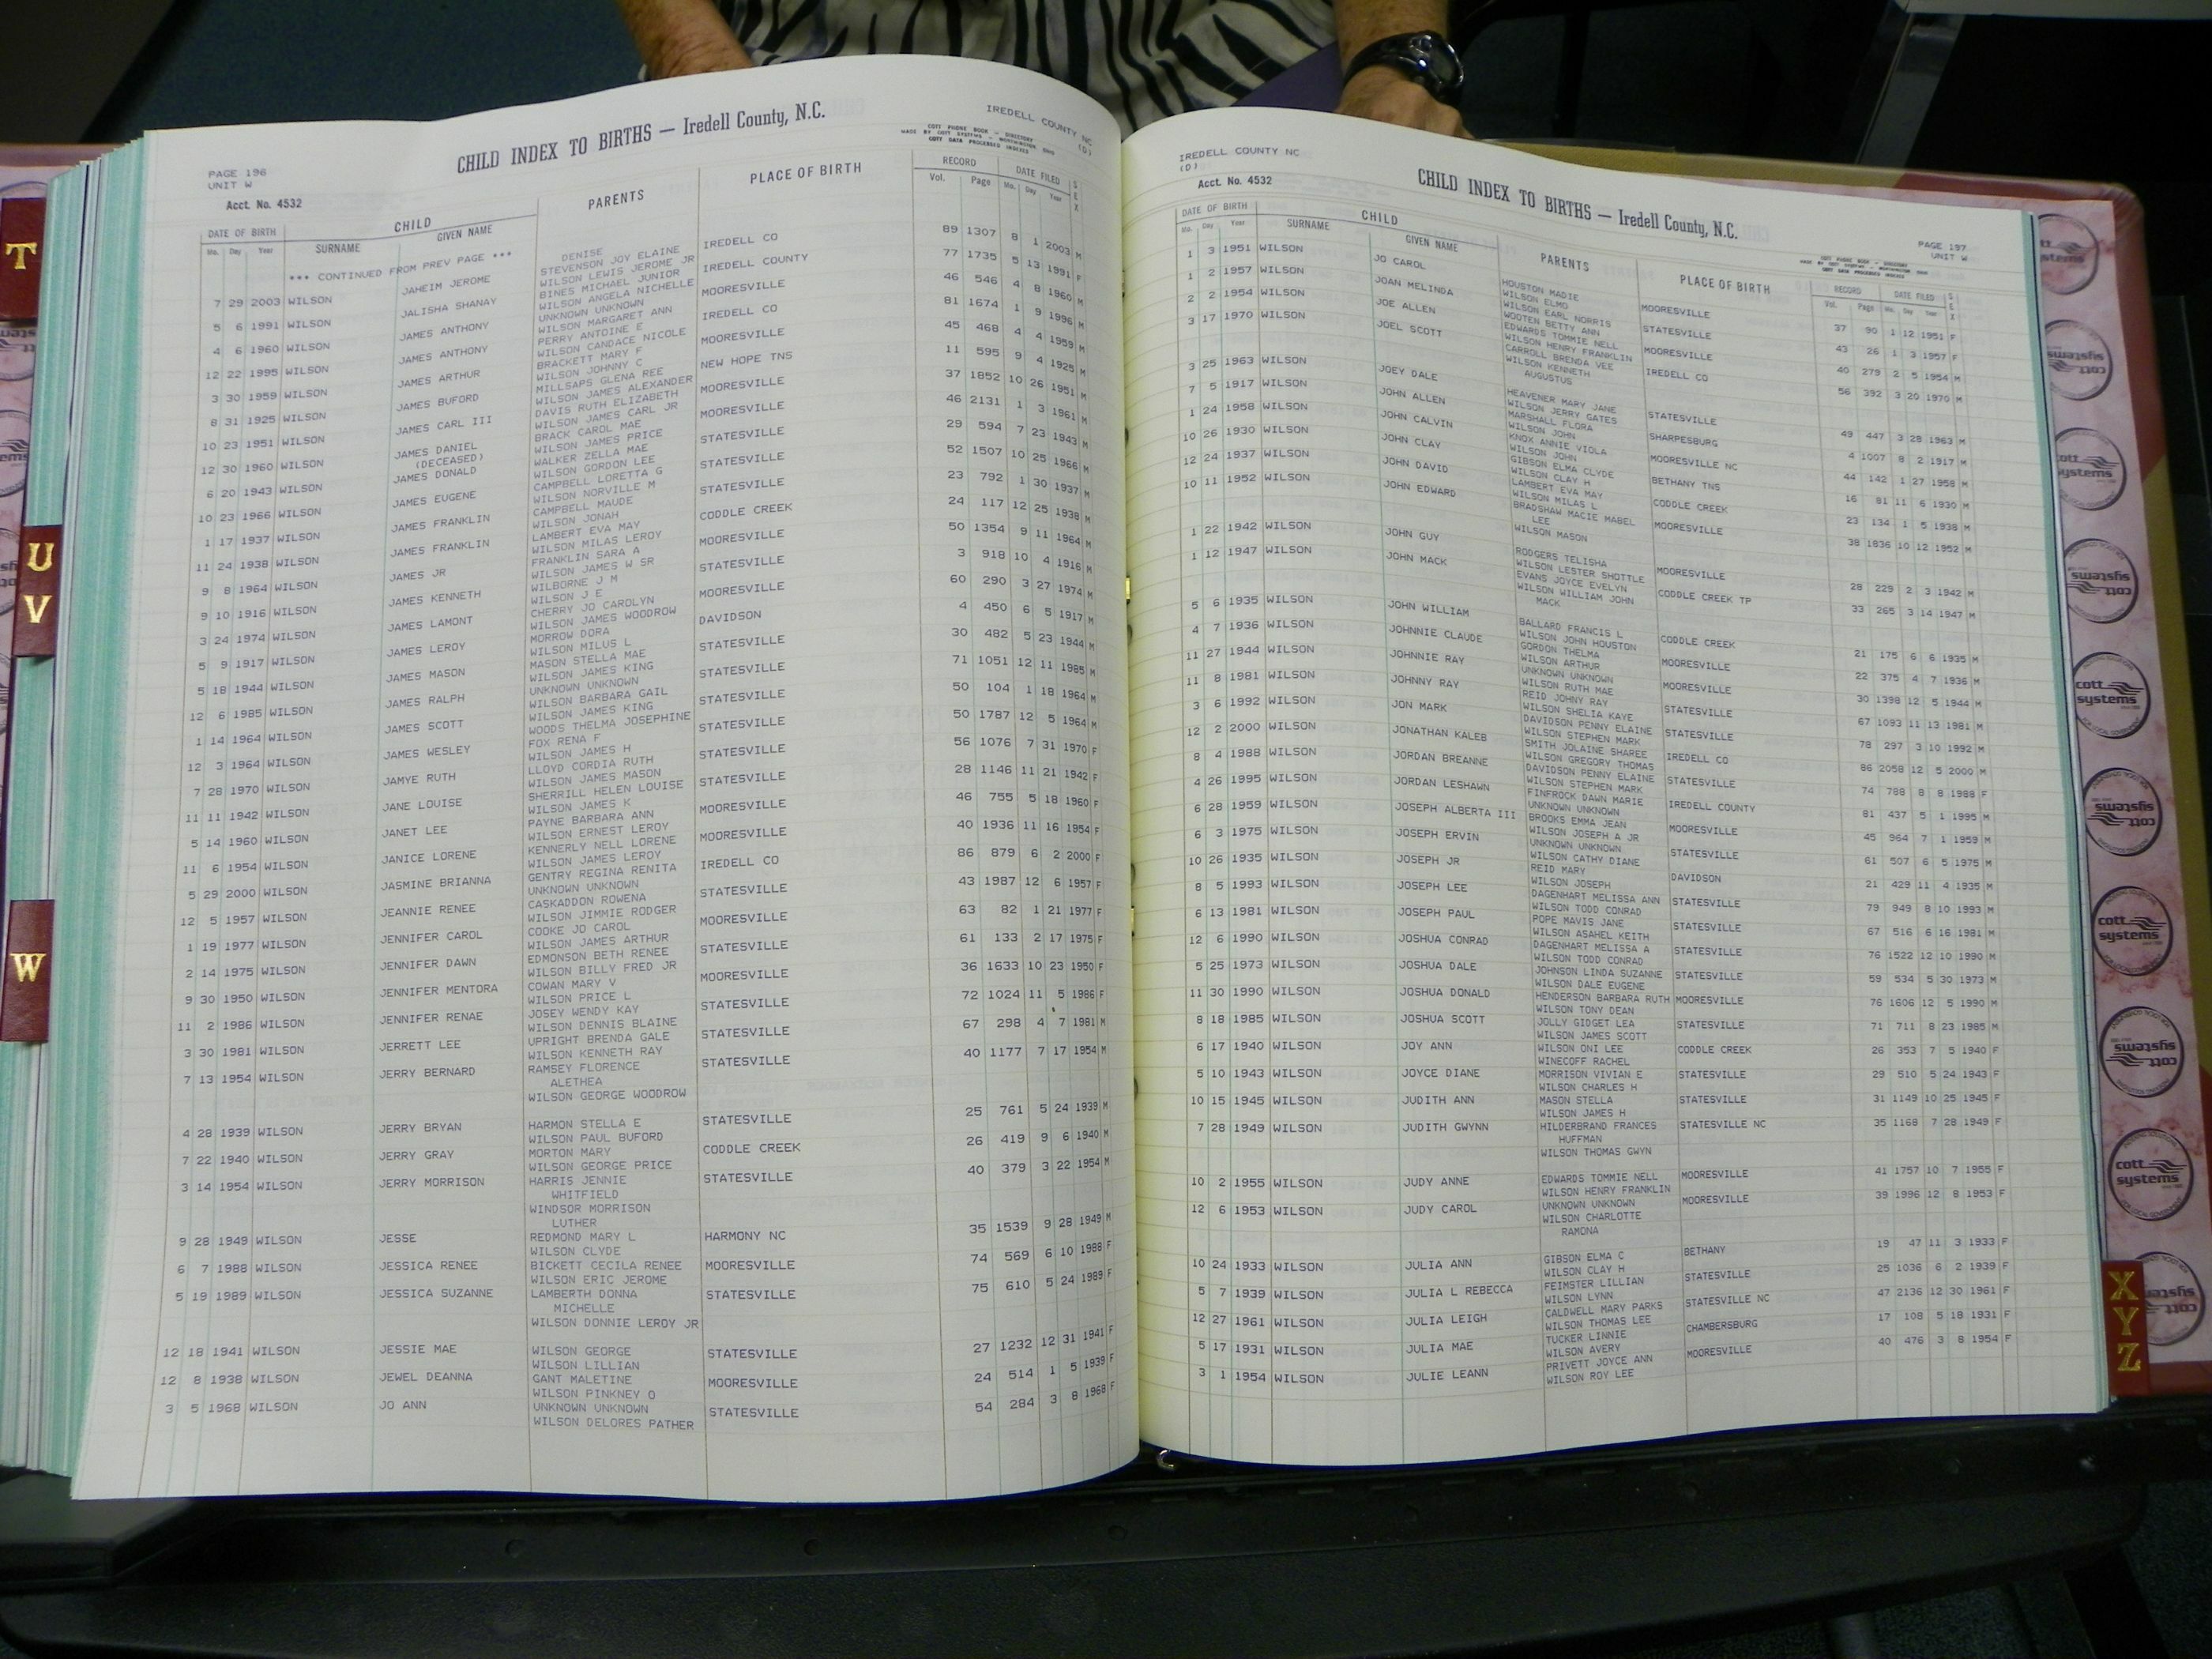 PAGE 196
UNIT W
Acct. No. 4532
CHILD INDEX TO BIRTHS — Iredell County, N.C.
IREDELL COUNTY NC
(D)
COTT PHONE BOOK — DIRECTORY
MADE BY COTT SYSTEMS — WORTHINGTON, OHIO
COTT DATA PROCESSED INDEXES
DATE OF BIRTH CHILD PARENTS PLACE OF BIRTH RECORD DATE FILED SEX
Mo. Day Year SURNAME GIVEN NAME Vol. Page Mo. Day Year
*** CONTINUED FROM PREV PAGE ***
DENISE
7 29 2003 WILSON JAHEIM JEROME STEVENSON JOY ELAINE IREDELL CO 89 1307 8 1 2003 M
WILSON LEWIS JEROME JR
5 6 1991 WILSON JALISHA SHANAY BINES MICHAEL JUNIOR IREDELL COUNTY 77 1735 5 13 1991 F
WILSON ANGELA NICHELLE
4 6 1960 WILSON JAMES ANTHONY UNKNOWN UNKNOWN MOORESVILLE 46 546 4 8 1960 M
WILSON MARGARET ANN
12 22 1995 WILSON JAMES ANTHONY PERRY ANTOINE E IREDELL CO 81 1674 1 9 1996 M
WILSON CANDACE NICOLE
3 30 1959 WILSON JAMES ARTHUR BRACKETT MARY F MOORESVILLE 45 468 4 4 1959 M
WILSON JOHNNY C
8 31 1925 WILSON JAMES BUFORD MILLSAPS GLENA REE NEW HOPE TNS 11 595 9 4 1925 M
WILSON JAMES ALEXANDER
10 23 1951 WILSON JAMES CARL III DAVIS RUTH ELIZABETH MOORESVILLE 37 1852 10 26 1951 M
WILSON JAMES CARL JR
12 30 1960 WILSON JAMES DANIEL BRACK CAROL MAE MOORESVILLE 46 2131 1 3 1961 M
(DECEASED) WILSON JAMES PRICE
6 20 1943 WILSON JAMES DONALD WALKER ZELLA MAE STATESVILLE 29 594 7 23 1943 M
WILSON GORDON LEE
10 23 1966 WILSON JAMES EUGENE CAMPBELL LORETTA G STATESVILLE 52 1507 10 25 1966 M
WILSON NORVILLE M
1 17 1937 WILSON JAMES FRANKLIN CAMPBELL MAUDE STATESVILLE 23 792 1 30 1937 M
WILSON JONAH
11 24 1938 WILSON JAMES FRANKLIN LAMBERT EVA MAY CODDLE CREEK 24 117 12 25 1938 M
WILSON MILAS LEROY
9 8 1964 WILSON JAMES JR FRANKLIN SARA A MOORESVILLE 50 1354 9 11 1964 M
WILSON JAMES W SR
9 10 1916 WILSON JAMES KENNETH WILBORNE J M STATESVILLE 3 918 10 4 1916 M
WILSON J E
3 24 1974 WILSON JAMES LAMONT CHERRY JO CAROLYN MOORESVILLE 60 290 3 27 1974 M
WILSON JAMES WOODROW
5 9 1917 WILSON JAMES LEROY MORROW DORA DAVIDSON 4 450 6 5 1917 M
WILSON MILUS L
5 18 1944 WILSON JAMES MASON MASON STELLA MAE STATESVILLE 30 482 5 23 1944 M
WILSON JAMES KING
12 6 1985 WILSON JAMES RALPH UNKNOWN UNKNOWN STATESVILLE 71 1051 12 11 1985 M
WILSON BARBARA GAIL
1 14 1964 WILSON JAMES SCOTT WILSON JAMES KING STATESVILLE 50 104 1 18 1964 M
WOODS THELMA JOSEPHINE
12 3 1964 WILSON JAMES WESLEY FOX RENA F STATESVILLE 50 1787 12 5 1964 M
WILSON JAMES H
7 28 1970 WILSON JAMYE RUTH LLOYD CORDIA RUTH STATESVILLE 56 1076 7 31 1970 F
WILSON JAMES MASON
11 11 1942 WILSON JANE LOUISE SHERRILL HELEN LOUISE STATESVILLE 28 1146 11 21 1942 F
WILSON JAMES K
5 14 1960 WILSON JANET LEE PAYNE BARBARA ANN MOORESVILLE 46 755 5 18 1960 F
WILSON ERNEST LEROY
11 6 1954 WILSON JANICE LORENE KENNERLY NELL LORENE MOORESVILLE 40 1936 11 16 1954 F
WILSON JAMES LEROY
5 29 2000 WILSON JASMINE BRIANNA GENTRY REGINA RENITA IREDELL CO 86 879 6 2 2000 F
UNKNOWN UNKNOWN
12 5 1957 WILSON JEANNIE RENEE CASKADDON ROWENA STATESVILLE 43 1987 12 6 1957 F
WILSON JIMMIE RODGER
1 19 1977 WILSON JENNIFER CAROL COOKE JO CAROL MOORESVILLE 63 82 1 21 1977 F
WILSON JAMES ARTHUR
2 14 1975 WILSON JENNIFER DAWN EDMONSON BETH RENEE STATESVILLE 61 133 2 17 1975 F
WILSON BILLY FRED JR
9 30 1950 WILSON JENNIFER MENTORA COWAN MARY V MOORESVILLE 36 1633 10 23 1950 F
WILSON PRICE L
11 2 1986 WILSON JENNIFER RENAE JOSEY WENDY KAY STATESVILLE 72 1024 11 5 1986 F
WILSON DENNIS BLAINE
3 30 1981 WILSON JERRETT LEE UPRIGHT BRENDA GALE STATESVILLE 67 298 4 7 1981 M
WILSON KENNETH RAY
7 13 1954 WILSON JERRY BERNARD RAMSEY FLORENCE STATESVILLE 40 1177 7 17 1954 M
ALETHEA
WILSON GEORGE WOODROW
4 28 1939 WILSON JERRY BRYAN HARMON STELLA E STATESVILLE 25 761 5 24 1939 M
WILSON PAUL BUFORD
7 22 1940 WILSON JERRY GRAY MORTON MARY CODDLE CREEK 26 419 9 6 1940 M
WILSON GEORGE PRICE
3 14 1954 WILSON JERRY MORRISON HARRIS JENNIE STATESVILLE 40 379 3 22 1954 M
WHITFIELD
WINDSOR MORRISON
LUTHER
9 28 1949 WILSON JESSE REDMOND MARY L HARMONY NC 35 1539 9 28 1949 M
WILSON CLYDE
6 7 1988 WILSON JESSICA RENEE BICKETT CECILA RENEE MOORESVILLE 74 569 6 10 1988 F
WILSON ERIC JEROME
5 19 1989 WILSON JESSICA SUZANNE LAMBERTH DONNA STATESVILLE 75 610 5 24 1989 F
MICHELLE
WILSON DONNIE LEROY JR
12 18 1941 WILSON JESSIE MAE WILSON GEORGE STATESVILLE 27 1232 12 31 1941 F
WILSON LILLIAN
12 8 1938 WILSON JEWEL DEANNA GANT MALETINE MOORESVILLE 24 514 1 5 1939 F
WILSON PINKNEY O
3 5 1968 WILSON JO ANN UNKNOWN UNKNOWN STATESVILLE 54 284 3 8 1968 F
WILSON DELORES PATHER
IREDELL COUNTY NC
(D)
Acct. No. 4532
CHILD INDEX TO BIRTHS — Iredell County, N.C.
PAGE 197
UNIT W
COTT PHONE BOOK — DIRECTORY
MADE BY COTT SYSTEMS — WORTHINGTON, OHIO
COTT DATA PROCESSED INDEXES
DATE OF BIRTH CHILD PARENTS PLACE OF BIRTH RECORD DATE FILED SEX
Mo. Day Year SURNAME GIVEN NAME Vol. Page Mo. Day Year
1 3 1951 WILSON JO CAROL HOUSTON MADIE MOORESVILLE 37 90 1 12 1951 F
WILSON ELMO
1 2 1957 WILSON JOAN MELINDA WILSON EARL NORRIS STATESVILLE 43 26 1 3 1957 F
WOOTEN BETTY ANN
2 2 1954 WILSON JOE ALLEN EDWARDS TOMMIE NELL MOORESVILLE 40 279 2 5 1954 M
WILSON HENRY FRANKLIN
3 17 1970 WILSON JOEL SCOTT CARROLL BRENDA VEE IREDELL CO 56 392 3 20 1970 M
WILSON KENNETH
AUGUSTUS
3 25 1963 WILSON JOEY DALE HEAVENER MARY JANE STATESVILLE 49 447 3 28 1963 M
WILSON JERRY GATES
7 5 1917 WILSON JOHN ALLEN MARSHALL FLORA SHARPESBURG 4 1007 8 2 1917 M
WILSON JOHN
1 24 1958 WILSON JOHN CALVIN KNOX ANNIE VIOLA MOORESVILLE NC 44 142 1 27 1958 M
WILSON JOHN
10 26 1930 WILSON JOHN CLAY GIBSON ELMA CLYDE BETHANY TNS 16 81 11 6 1930 M
WILSON CLAY H
12 24 1937 WILSON JOHN DAVID LAMBERT EVA MAY CODDLE CREEK 23 134 1 5 1938 M
WILSON MILAS L
10 11 1952 WILSON JOHN EDWARD BRADSHAW MACIE MABEL MOORESVILLE 38 1836 10 12 1952 M
LEE
WILSON MASON
1 22 1942 WILSON JOHN GUY RODGERS TELISHA MOORESVILLE 28 229 2 3 1942 M
WILSON LESTER SHOTTLE
1 12 1947 WILSON JOHN MACK EVANS JOYCE EVELYN CODDLE CREEK TP 33 265 3 14 1947 M
WILSON WILLIAM JOHN
MACK
5 6 1935 WILSON JOHN WILLIAM BALLARD FRANCIS L CODDLE CREEK 21 175 6 6 1935 M
WILSON JOHN HOUSTON
4 7 1936 WILSON JOHNNIE CLAUDE GORDON THELMA MOORESVILLE 22 375 4 7 1936 M
WILSON ARTHUR
11 27 1944 WILSON JOHNNIE RAY UNKNOWN UNKNOWN MOORESVILLE 30 1398 12 5 1944 M
WILSON RUTH MAE
11 8 1981 WILSON JOHNNY RAY REID JOHNY RAY STATESVILLE 67 1093 11 13 1981 M
WILSON SHELIA KAYE
3 6 1992 WILSON JON MARK DAVIDSON PENNY ELAINE STATESVILLE 78 297 3 10 1992 M
WILSON STEPHEN MARK
12 2 2000 WILSON JONATHAN KALEB SMITH JOLAINE SHAREE IREDELL CO 86 2058 12 5 2000 M
WILSON GREGORY THOMAS
8 4 1988 WILSON JORDAN BREANNE DAVIDSON PENNY ELAINE STATESVILLE 74 788 8 8 1988 F
WILSON STEPHEN MARK
4 26 1995 WILSON JORDAN LESHAWN FINFROCK DAWN MARIE IREDELL COUNTY 81 437 5 1 1995 M
UNKNOWN UNKNOWN
6 28 1959 WILSON JOSEPH ALBERTA III BROOKS EMMA JEAN MOORESVILLE 45 964 7 1 1959 M
WILSON JOSEPH A JR
6 3 1975 WILSON JOSEPH ERVIN UNKNOWN UNKNOWN STATESVILLE 61 507 6 5 1975 M
WILSON CATHY DIANE
10 26 1935 WILSON JOSEPH JR REID MARY DAVIDSON 21 429 11 4 1935 M
WILSON JOSEPH
8 5 1993 WILSON JOSEPH LEE DAGENHART MELISSA ANN STATESVILLE 79 949 8 10 1993 M
WILSON TODD CONRAD
6 13 1981 WILSON JOSEPH PAUL POPE MAVIS JANE STATESVILLE 67 516 6 16 1981 M
WILSON ASAHEL KEITH
12 6 1990 WILSON JOSHUA CONRAD DAGENHART MELISSA A STATESVILLE 76 1522 12 10 1990 M
WILSON TODD CONRAD
5 25 1973 WILSON JOSHUA DALE JOHNSON LINDA SUZANNE STATESVILLE 59 534 5 30 1973 M
WILSON DALE EUGENE
11 30 1990 WILSON JOSHUA DONALD HENDERSON BARBARA RUTH MOORESVILLE 76 1606 12 5 1990 M
WILSON TONY DEAN
8 18 1985 WILSON JOSHUA SCOTT JOLLY GIDGET LEA STATESVILLE 71 711 8 23 1985 M
WILSON JAMES SCOTT
6 17 1940 WILSON JOY ANN WILSON ONI LEE CODDLE CREEK 26 353 7 5 1940 F
WINECOFF RACHEL
5 10 1943 WILSON JOYCE DIANE MORRISON VIVIAN E STATESVILLE 29 510 5 24 1943 F
WILSON CHARLES H
10 15 1945 WILSON JUDITH ANN MASON STELLA STATESVILLE 31 1149 10 25 1945 F
WILSON JAMES H
7 28 1949 WILSON JUDITH GWYNN HILDERBRAND FRANCES STATESVILLE NC 35 1168 7 28 1949 F
HUFFMAN
WILSON THOMAS GWYN
10 2 1955 WILSON JUDY ANNE EDWARDS TOMMIE NELL MOORESVILLE 41 1757 10 7 1955 F
WILSON HENRY FRANKLIN
12 6 1953 WILSON JUDY CAROL UNKNOWN UNKNOWN MOORESVILLE 39 1996 12 8 1953 F
WILSON CHARLOTTE
RAMONA
10 24 1933 WILSON JULIA ANN GIBSON ELMA C BETHANY 19 47 11 3 1933 F
WILSON CLAY H
5 7 1939 WILSON JULIA L REBECCA FEIMSTER LILLIAN STATESVILLE 25 1036 6 2 1939 F
WILSON LYNN
12 27 1961 WILSON JULIA LEIGH CALDWELL MARY PARKS STATESVILLE NC 47 2136 12 30 1961 F
WILSON THOMAS LEE
5 17 1931 WILSON JULIA MAE TUCKER LINNIE CHAMBERSBURG 17 108 5 18 1931 F
WILSON AVERY
3 1 1954 WILSON JULIE LEANN PRIVETT JOYCE ANN MOORESVILLE 40 476 3 8 1954 F
WILSON ROY LEE
T
U
V
W
X
Y
Z
cott
systems